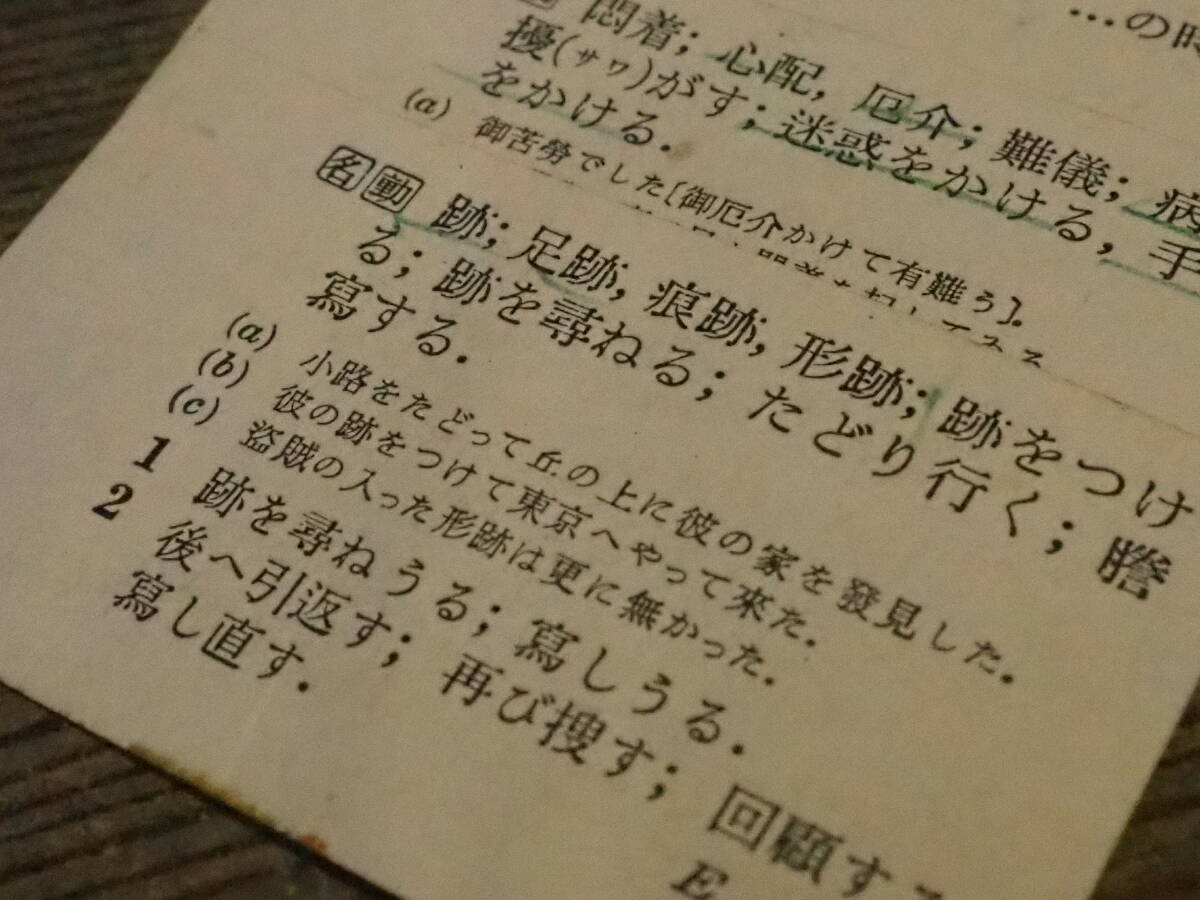 …の時
悶着; 心配, 厄介; 難儀; 病
擾(サワ)がす; 迷惑をかける, 手
をかける.
(a) 御苦勞でした[御厄介かけて有難う].
名 動 跡; 足跡, 痕跡, 形跡; 跡をつけ
る; 跡を尋ねる; たどり行く; 謄
寫する.
(a) 小路をたどって丘の上に彼の家を發見した.
(b) 彼の跡をつけて東京へやって來た.
(c) 盜賊の入った形跡は更に無かった.
1 跡を尋ねうる; 寫しうる.
2 後へ引返す; 再び搜す; 回顧す
寫し直す.
E